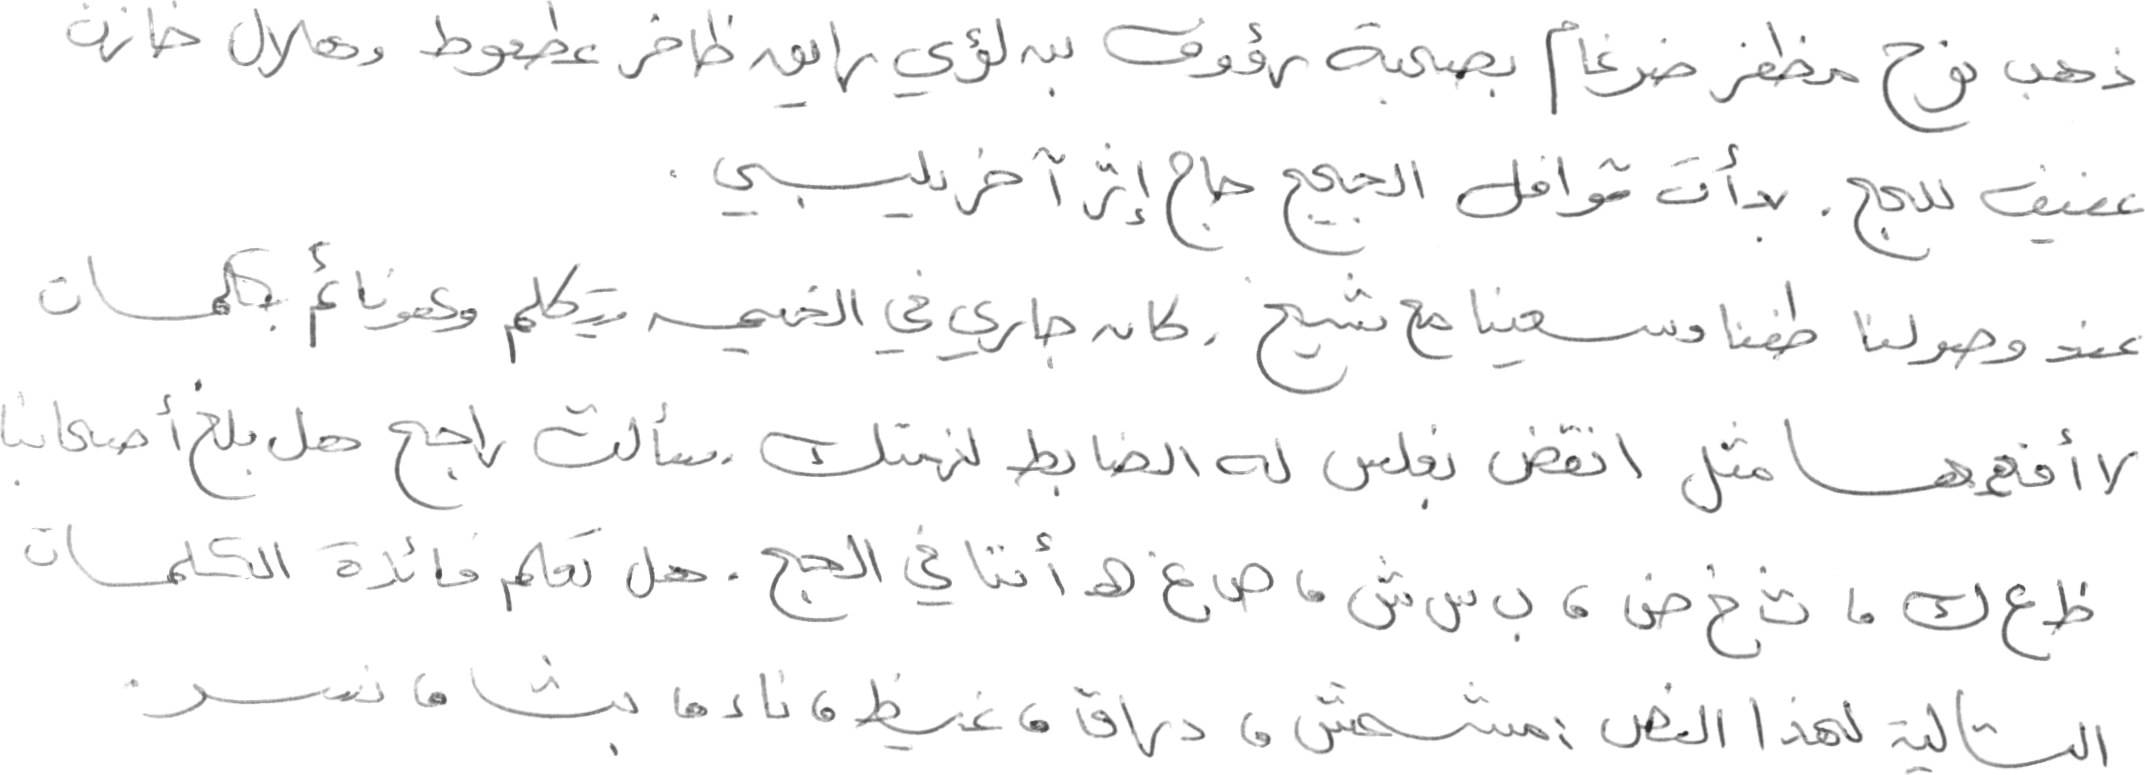 ذهب نوح مظفر ضرغام بصحبة رؤوف بن لؤي رايق ظافر عطعوط وهلال خازن
عفيف للحج. بدأت قوافل الحجيج حاج إثر آخر يلبي.
عند وصولنا طفنا وسعينا مع شيخ. كان جاري في الخيمه يتكلم وهو نائم بكلمات
لا أفهمها مثل انقض نعلس له الضابط لنهتك. سألت راجح هل بلغ أصحابنا
ظ ع ك، ث خ ض، ب س ش، ص غ ه أننا في الحج. هل تعلم فائدة الكلمات
التالية لهذا النص: مشمش، دراق، غيظ، ناء، بث، نسر.